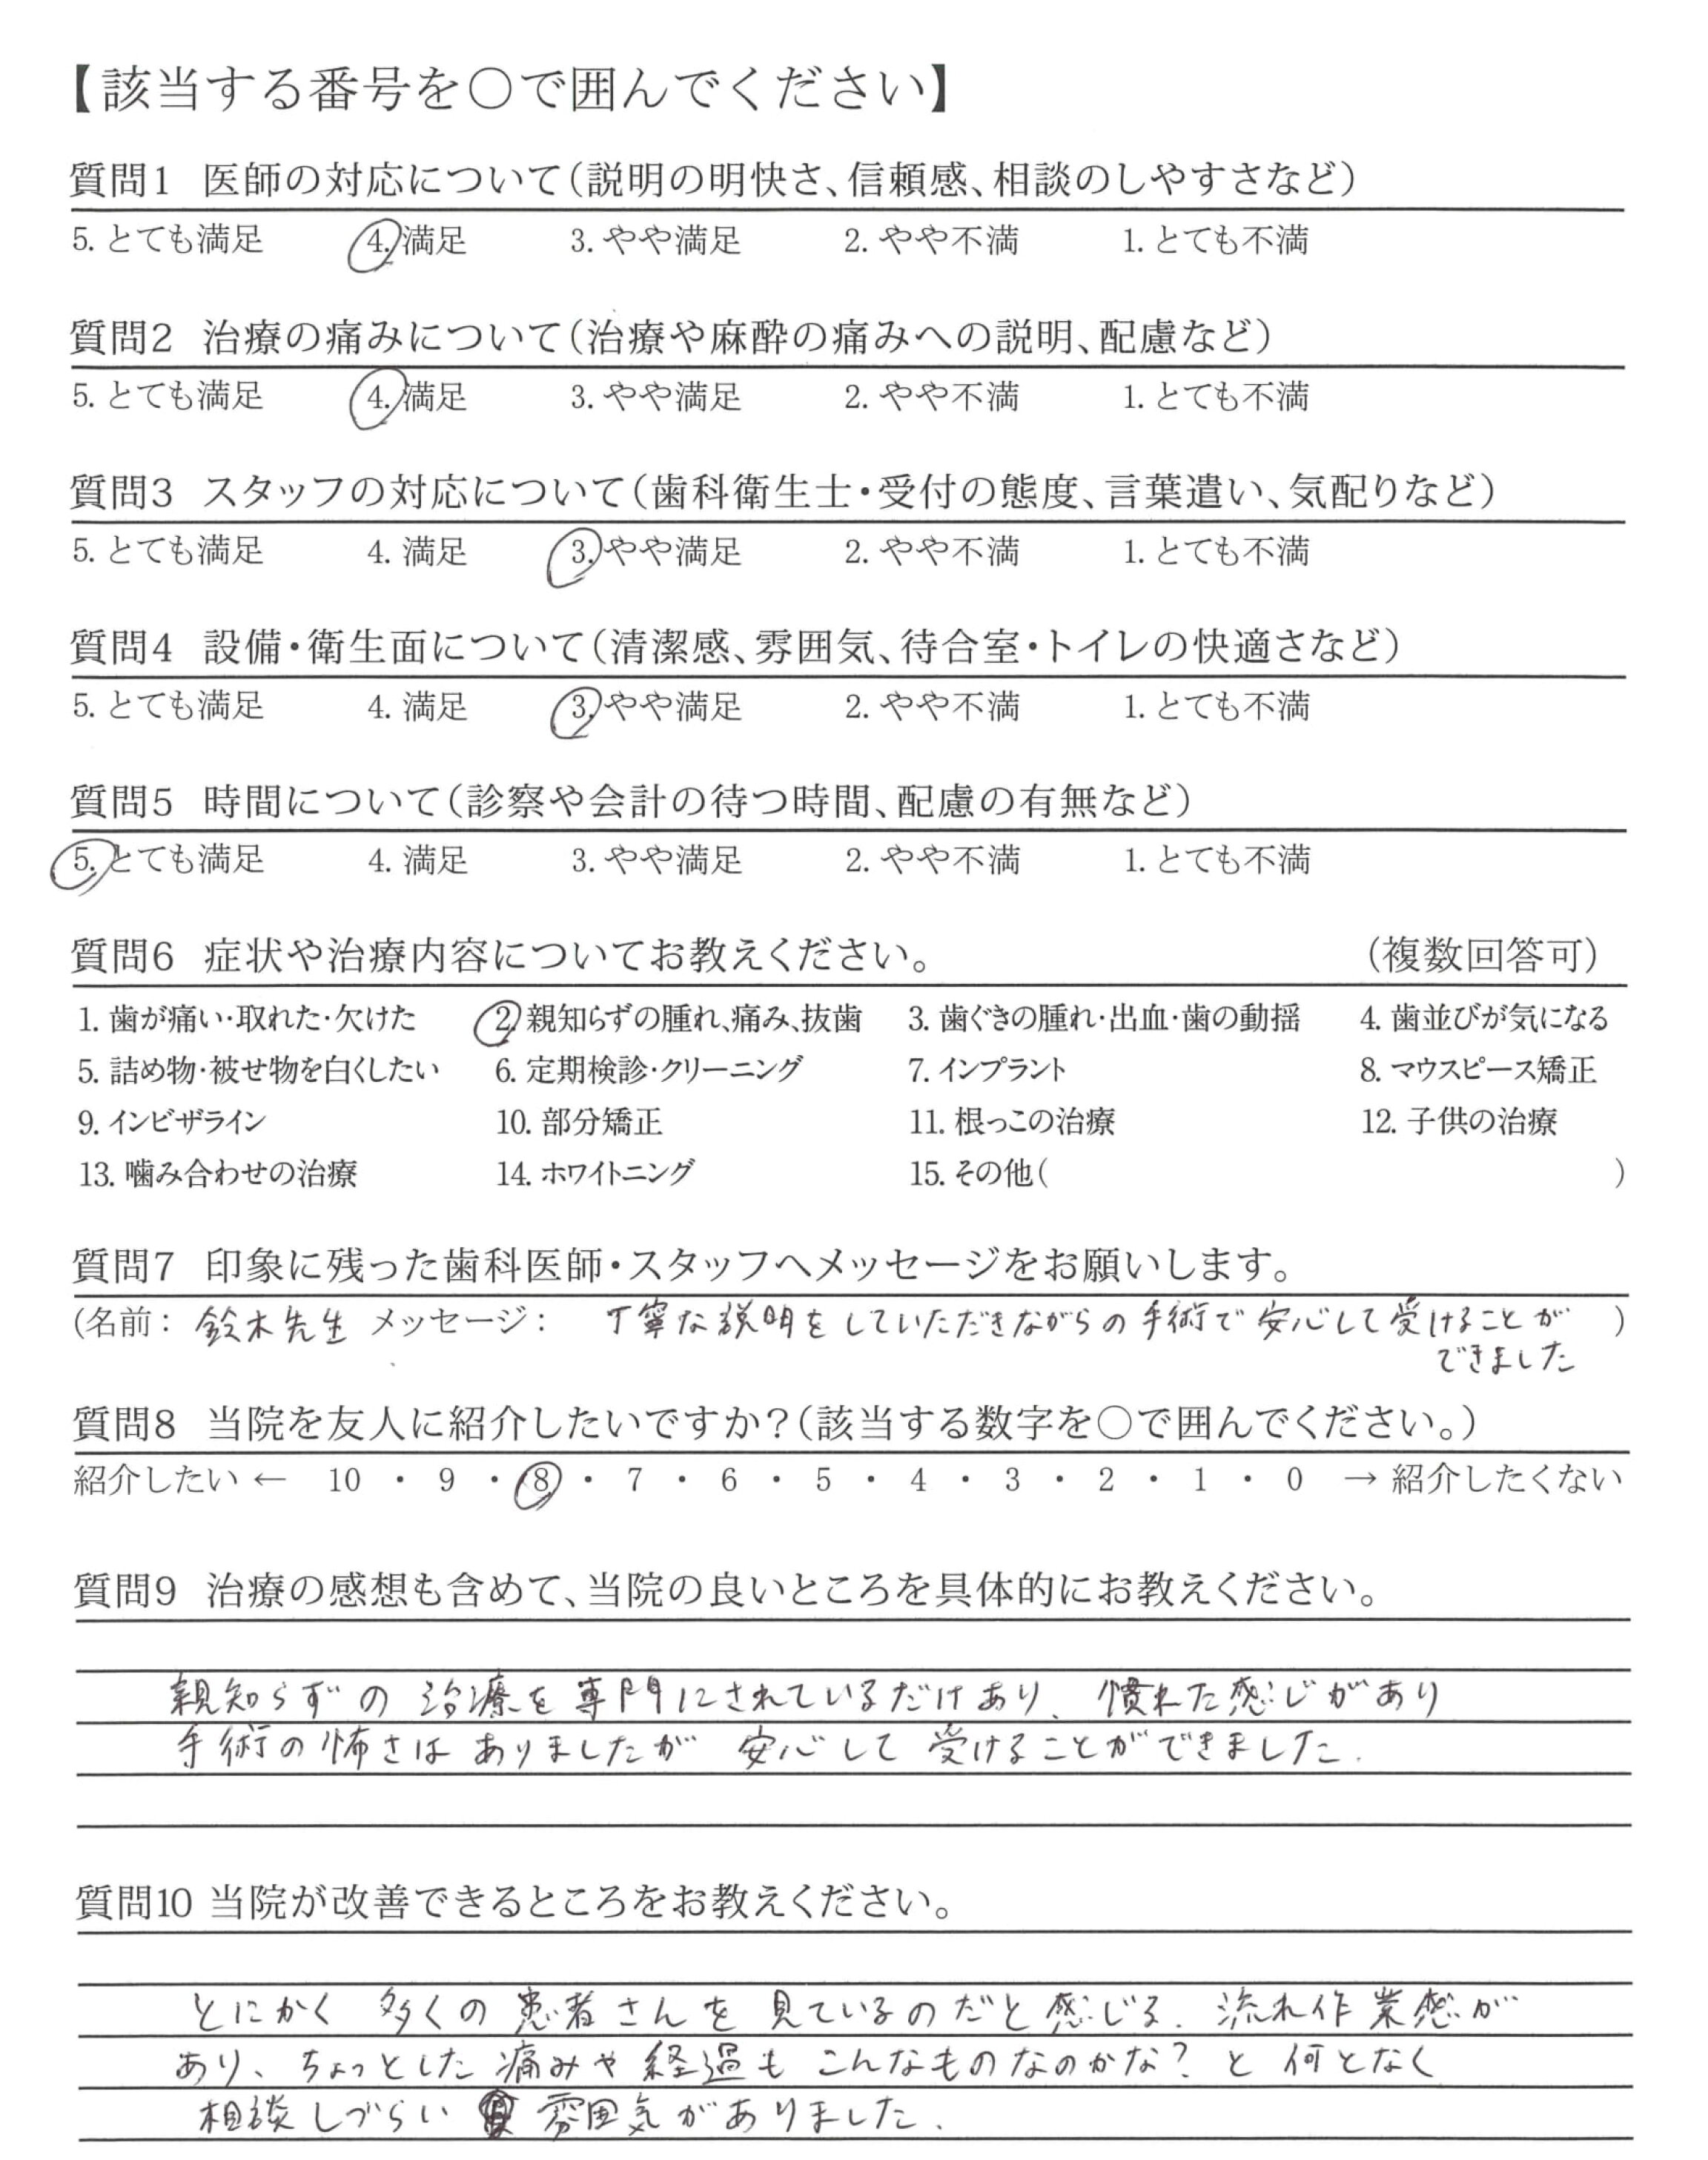 【該当する番号を○で囲んでください】
質問1 医師の対応について(説明の明快さ、信頼感、相談のしやすさなど)
5. とても満足 4. 満足 3. やや満足 2. やや不満 1. とても不満
質問2 治療の痛みについて(治療や麻酔の痛みへの説明、配慮など)
5. とても満足 4. 満足 3. やや満足 2. やや不満 1. とても不満
質問3 スタッフの対応について(歯科衛生士・受付の態度、言葉遣い、気配りなど)
5. とても満足 4. 満足 3. やや満足 2. やや不満 1. とても不満
質問4 設備・衛生面について(清潔感、雰囲気、待合室・トイレの快適さなど)
5. とても満足 4. 満足 3. やや満足 2. やや不満 1. とても不満
質問5 時間について(診察や会計の待つ時間、配慮の有無など)
5. とても満足 4. 満足 3. やや満足 2. やや不満 1. とても不満
質問6 症状や治療内容についてお教えください。 (複数回答可)
1. 歯が痛い・取れた・欠けた 2. 親知らずの腫れ、痛み、抜歯 3. 歯ぐきの腫れ・出血・歯の動揺 4. 歯並びが気になる
5. 詰め物・被せ物を白くしたい 6. 定期検診・クリーニング 7. インプラント 8. マウスピース矯正
9. インビザライン 10. 部分矯正 11. 根っこの治療 12. 子供の治療
13. 噛み合わせの治療 14. ホワイトニング 15. その他( )
質問7 印象に残った歯科医師・スタッフへメッセージをお願いします。
(名前: 鈴木先生 メッセージ: 丁寧な説明をしていただきながらの手術で安心して受けることが )
できました
質問8 当院を友人に紹介したいですか?(該当する数字を○で囲んでください。)
紹介したい ← 10 ・ 9 ・ 8 ・ 7 ・ 6 ・ 5 ・ 4 ・ 3 ・ 2 ・ 1 ・ 0 → 紹介したくない
質問9 治療の感想も含めて、当院の良いところを具体的にお教えください。
親知らずの治療を専門にされているだけあり、慣れた感じがあり
手術の怖さはありましたが 安心して受けることができました.
質問10 当院が改善できるところをお教えください。
とにかく多くの患者さんを見ているのだと感じる. 流れ作業感が
あり、ちょっとした痛みや経過もこんなものなのかな?と何となく
相談しづらい 雰囲気がありました.